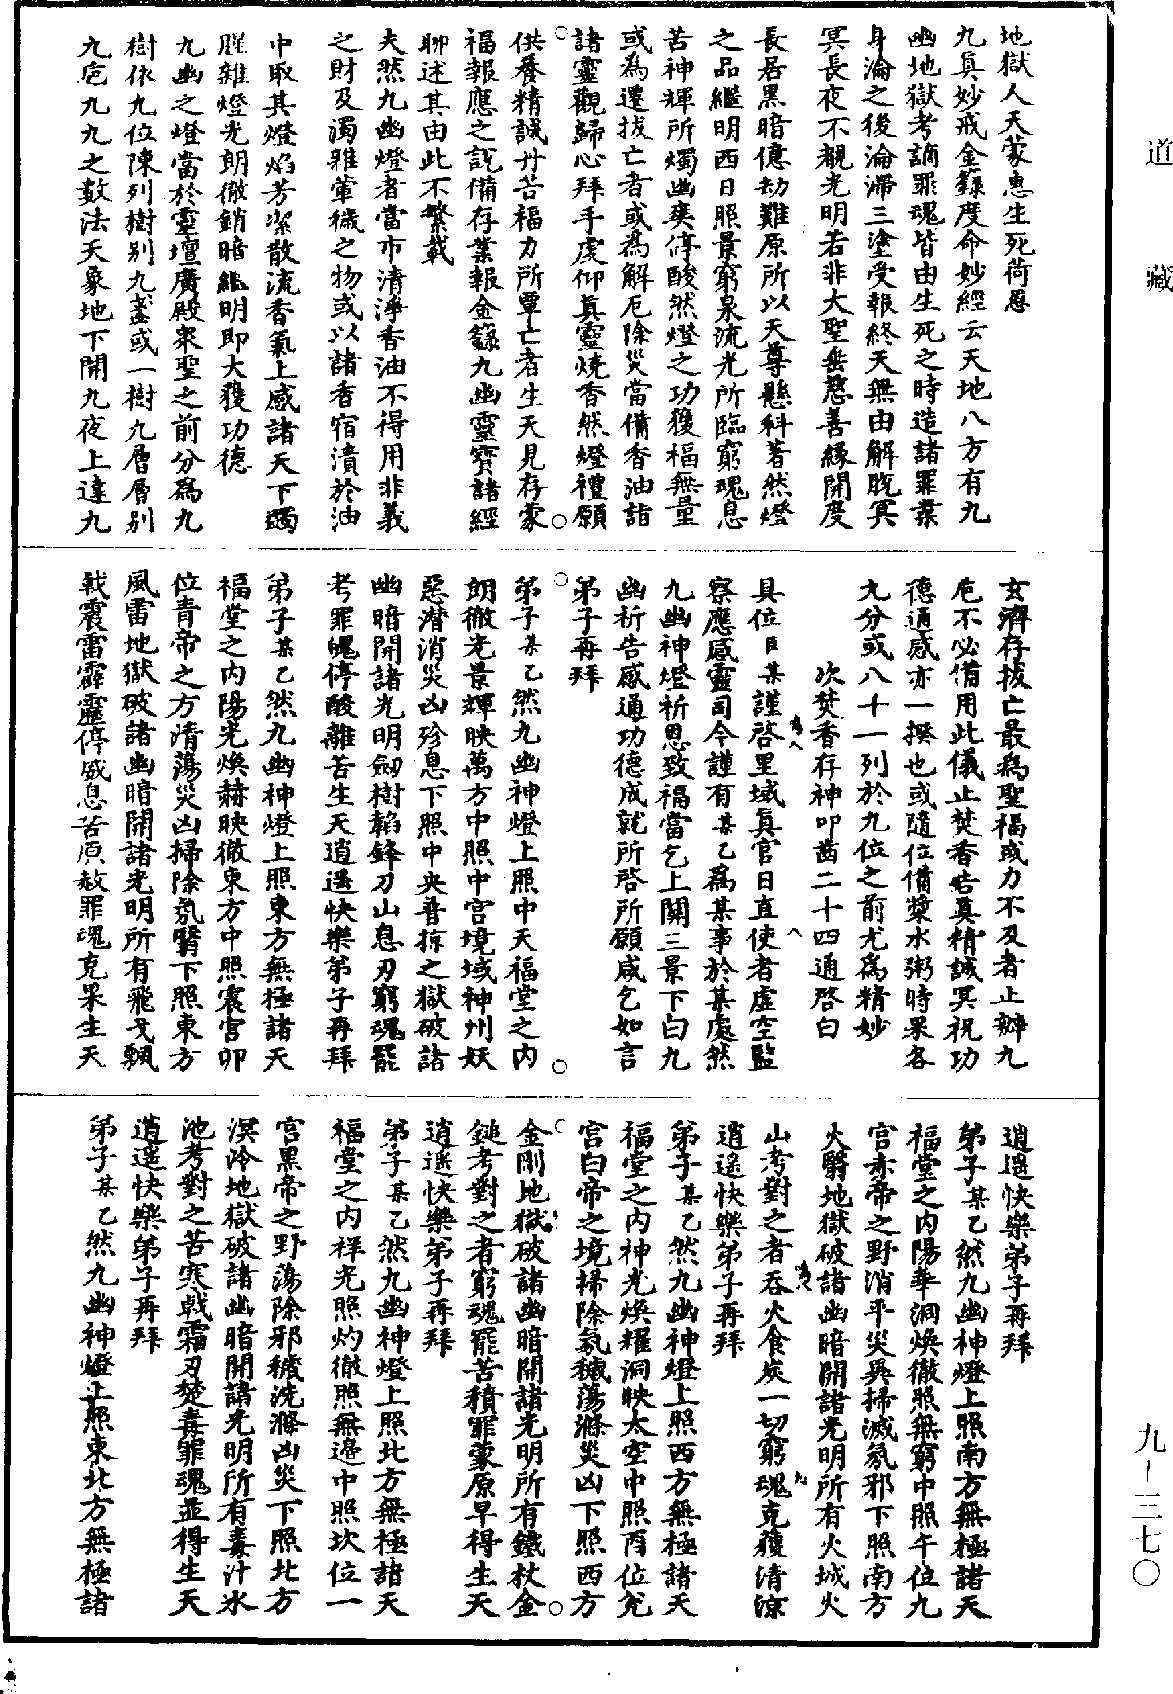 道藏
地獄人天蒙惠生死荷恩
九真妙戒金籙度命妙經云天地八方有九
幽地獄考謫罪魂皆由生死之時造諸罪業
身淪之後淪滯三塗受報終天無由解脫冥
冥長夜不覩光明若非大聖垂慈善緣開度
長居黑暗億劫難原所以天尊懸科著然燈
之品繼明西日照景窮泉流光所臨窮魂息
苦神輝所燭幽爽停酸然燈之功獲福無量
或為遷拔亡者或為解厄除災當備香油詣
諸靈觀歸心拜手虔仰真靈燒香然燈禮願
供養精誠丹苦福力所覃亡者生天見存蒙
福報應之說備存業報金籙九幽靈寶諸經
聊述其由此不繁載
夫然九幽燈者當市清淨香油不得用非義
之財及濁雜葷穢之物或以諸香宿漬於油
中取其燈焰芳潔散流香氣上感諸天下蠲
腥雜燈光朗徹銷暗繼明即大獲功德
九幽之燈當於靈壇廣殿衆聖之前分為九
樹依九位陳列樹別九盞或一樹九層層別
九卮九九之數法天象地下開九夜上達九
玄濟存拔亡最為聖福或力不及者止辦九
卮不必備用此儀止焚香告真精誠冥祝功
德通感亦一揆也或隨位備漿水粥時果各
九分或八十一列於九位之前尤為精妙
次焚香存神叩齒二十四通啓白
具位臣某謹啓里域真官日直使者虛空監
察應感靈司今謹有某乙為某事於某處然
九幽神燈祈恩致福當乞上聞三景下白九
幽祈告感通功德成就所啓所願咸乞如言
弟子再拜
弟子某乙然九幽神燈上照中天福堂之内
朗徹光景輝映萬方中照中宮境域神州妖
惡潛消災凶殄息下照中央普掠之獄破諸
幽暗開諸光明劒樹韜鋒刀山息刃窮魂罷
考罪魄停酸離苦生天逍遥快樂弟子再拜
弟子某乙然九幽神燈上照東方無極諸天
福堂之内陽光煥赫映徹東方中照震宮卯
位青帝之方清蕩災凶掃除氛翳下照東方
風雷地獄破諸幽暗開諸光明所有飛戈飄
戟震雷霹靂停威息苦原赦罪魂克果生天
逍遥快樂弟子再拜
弟子某乙然九幽神燈上照南方無極諸天
福堂之内陽華洞煥徹照無窮中照午位九
宮赤帝之野消平災異掃滅氛邪下照南方
火翳地獄破諸幽暗開諸光明所有火城火
山考對之者吞火食炭一切窮魂克獲清凉
逍遥快樂弟子再拜
弟子某乙然九幽神燈上照西方無極諸天
福堂之内神光煥耀洞映太空中照酉位兊
宮白帝之境掃除氛穢蕩滌災凶下照西方
金剛地獄破諸幽暗開諸光明所有鐵杖金
鎚考對之者窮魂罷苦積罪蒙原早得生天
逍遥快樂弟子再拜
弟子某乙然九幽神燈上照北方無極諸天
福堂之内祥光照灼徹照無邊中照坎位一
宮黑帝之野蕩除邪穢洗滌凶災下照北方
溟泠地獄破諸幽暗開諸光明所有毒汁氷
池考對之苦寒戟霜刃楚毒罪魂並得生天
逍遥快樂弟子再拜
弟子某乙然九幽神燈上照東北方無極諸
九-三七〇